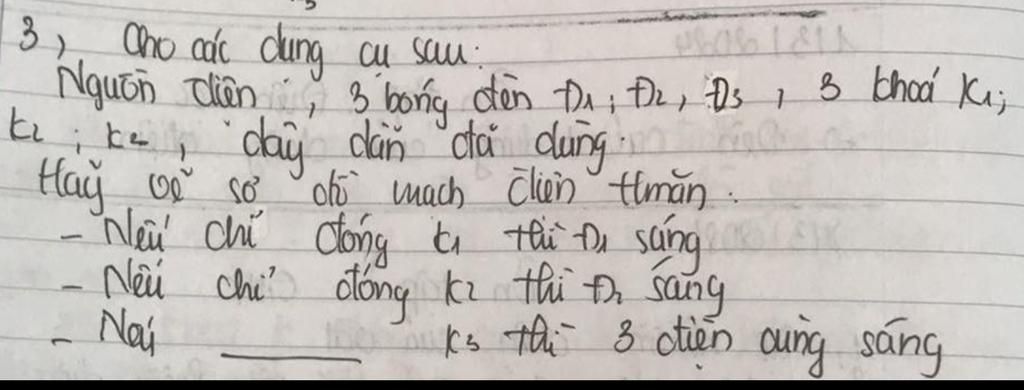 3, Cho các dụng cụ sau:
Nguồn điện, 3 bóng đèn Đ1; Đ2, Đ3, 3 khoá K1;
K2; K2, dây dẫn đả dùng.
Hãy vẽ sơ đồ mạch điện thmãn.
- Nếu chỉ đóng K1 thì Đ1 sáng
- Nếu chỉ đóng K2 thì Đ2 sáng
- Nếu ______ K3 thì 3 điện cùng sáng